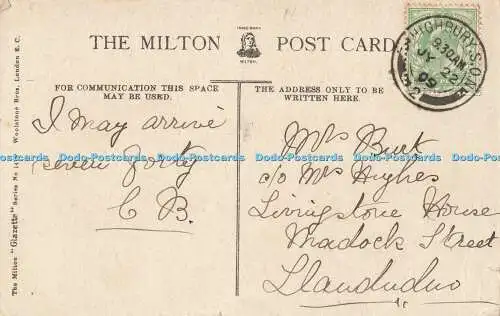 THE MILTON POST CARD
TRADE MARK
MILTON.
HIGHBURY S.O.
9.30AM
JY 22
FOR COMMUNICATION THIS SPACE
MAY BE USED.
THE ADDRESS ONLY TO BE
WRITTEN HERE.
I may arrive
seven forty
C B.
Mrs Burt
c/o Mrs Hughes
Livingstone House
Madock Street
Llandudno
The Milton "Glazette" Series No
Woolstone Bros., London E. C.
Dodo-Postcards Dodo-Postcards Dodo-Postcards Dodo-Postcards Dodo-Postcards